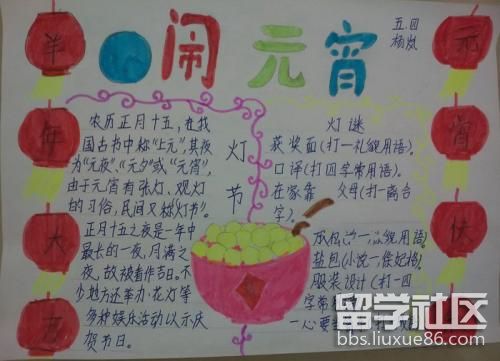 闹元宵
五.四
杨岚
羊
年
大
吉
元
宵
快
灯节
农历正月十五,在我
国古书中称“上元”,其夜
为“元夜”、“元夕”或“元宵”,
由于元宵有张灯、观灯
的习俗,民间又称“灯节”。
正月十五之夜是一年中
最长的一夜,月满之
夜,故被看作吉日。不
少地方还举办花灯等
多种娱乐活动以示庆
贺节日。
灯谜
获奖面(打一礼貌用语)。
口译(打四字常用语)。
在家靠 父母(打一离合
字)。
盐包(
服装设计(打一四
字常
一心要
留学社区
bbs.liuxue86.com